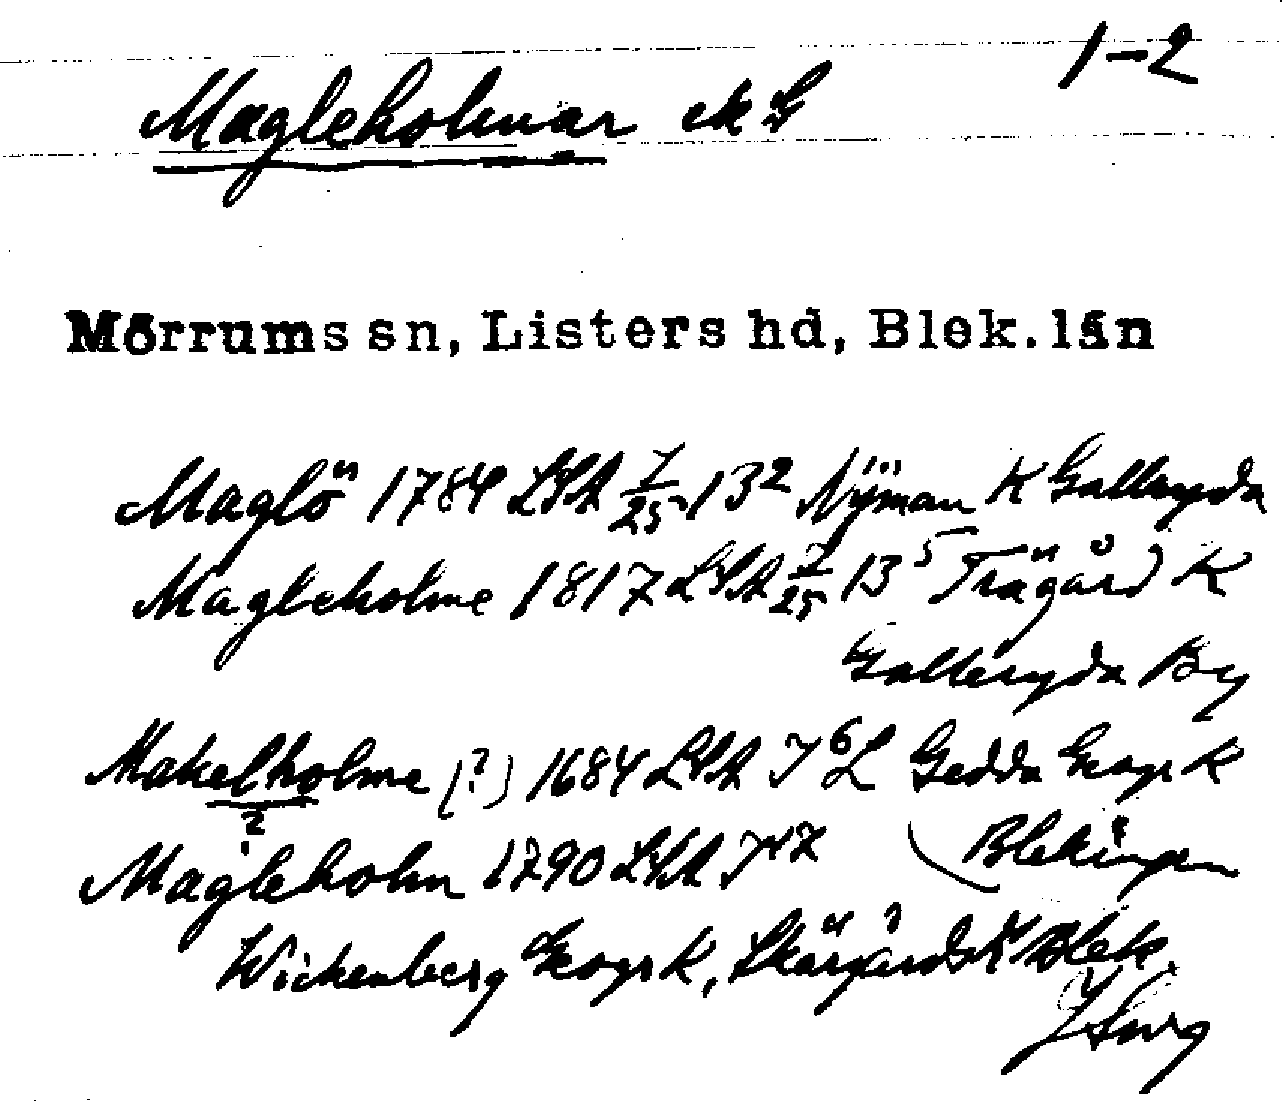 1-2
Magleholmar ek G
Mörrums sn, Listers hd, Blek. län
Maglö 1784 LSA 7/25 13² Nÿman K Galleryda
Magleholme 1817 LSA 7/25 13⁵ Trägård K
Galleryda By
Makelholme (?) 1684 LSA J⁶L Gedda Geogr K
?
Magleholm 1790 LSA Blekingen
Wickenberg Geogr K, Skärgårds K Blek.